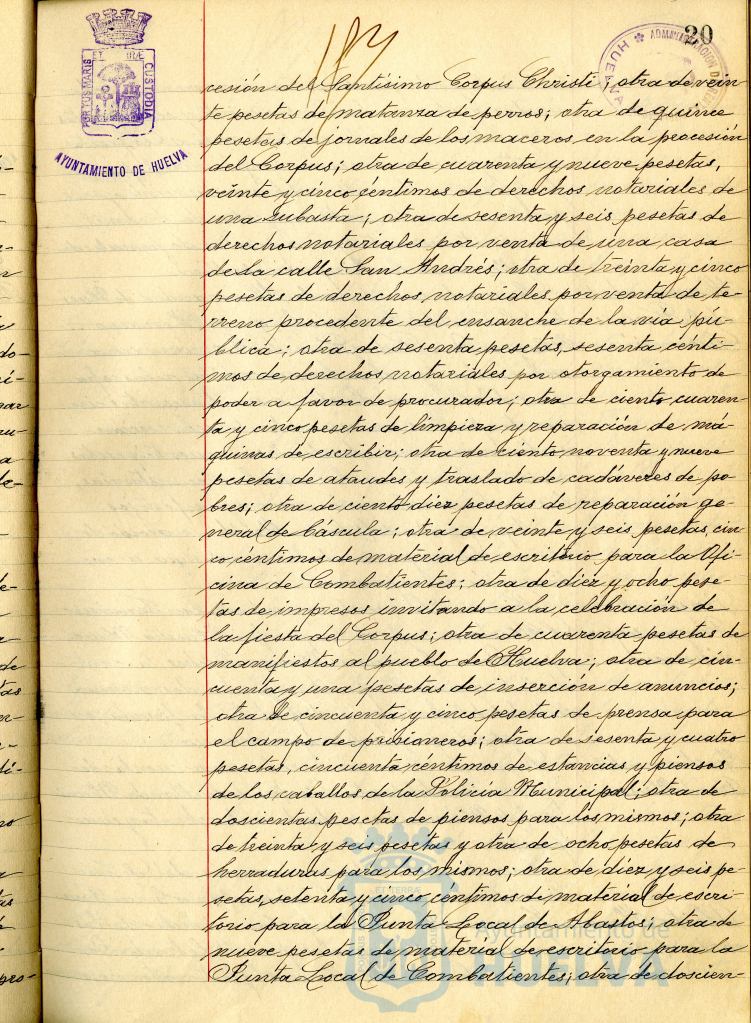 20
PORTUS MARIS ET TERRÆ CUSTODIA
AYUNTAMIENTO DE HUELVA
HUELVA
cesión del Santísimo Corpus Christi; otra de vein-
te pesetas de matanza de perros; otra de quince
pesetas de jornales de los maceros en la procesión
del Corpus; otra de cuarenta y nueve pesetas,
veinte y cinco céntimos de derechos notariales de
una subasta; otra de sesenta y seis pesetas de
derechos notariales por venta de una casa
de la calle San Andrés; otra de treinta y cinco
pesetas de derechos notariales por venta de te-
rreno procedente del ensanche de la vía pú-
blica; otra de sesenta pesetas, sesenta cénti-
mos de derechos notariales por otorgamiento de
poder a favor de procurador; otra de ciento cuaren-
ta y cinco pesetas de limpieza y reparación de má-
quinas de escribir; otra de ciento noventa y nueve
pesetas de ataudes y traslado de cadáveres de po-
bres; otra de ciento diez pesetas de reparación ge-
neral de báscula; otra de veinte y seis pesetas, cin-
co céntimos de material de escritorio para la Ofi-
cina de Combatientes; otra de diez y ocho pese-
tas de impresos invitando a la celebración de
la fiesta del Corpus; otra de cuarenta pesetas de
manifiestos al pueblo de Huelva; otra de cin-
cuenta y una pesetas de inserción de anuncios;
otra de cincuenta y cinco pesetas de prensa para
el campo de prisioneros; otra de sesenta y cuatro
pesetas, cincuenta céntimos de estancias y piensos
de los caballos de la Policía Municipal; otra de
doscientas pesetas de piensos para los mismos; otra
de treinta y seis pesetas y otra de ocho pesetas de
herraduras para los mismos; otra de diez y seis pe-
setas, setenta y cinco céntimos de material de escri-
torio para la Junta Local de Abastos; otra de
nueve pesetas de material de escritorio para la
Junta Local de Combatientes; otra de doscien-
Ayuntamiento de
HUELVA